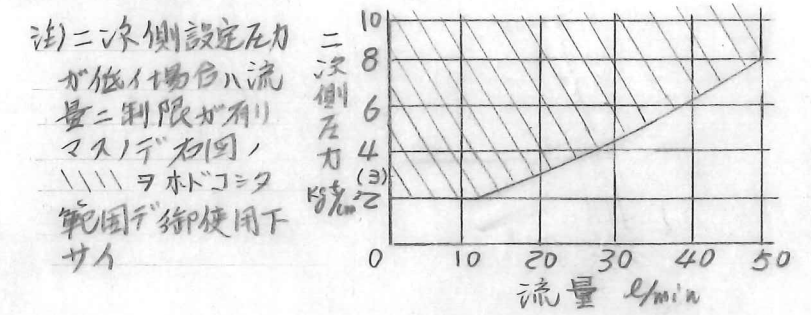 注)二次側設定圧力
ガ低イ場合ハ流
量ニ制限ガ有リ
マスノデ右図ノ
\\\\ヲホドコシタ
範囲デ御使用下
サイ
二次側圧力
kgf/cm²
10
8
6
4
(3)
2
0
10 20 30 40 50
流量 ℓ/min